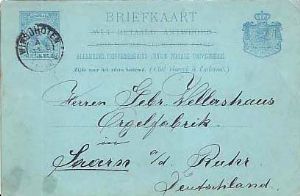 BRIEFKAART
MET BETAALD ANTWOORD
ALGEMEENE POSTVEREENIGING (UNION POSTALE UNIVERSELLE)
Zijde voor het adres bestemd. (Côté réservé à l'adresse).
WINSCHOTEN
Herren Gebr.
Orgelfabrik
in
Saarn a/d. Ruhr
Deutschland.